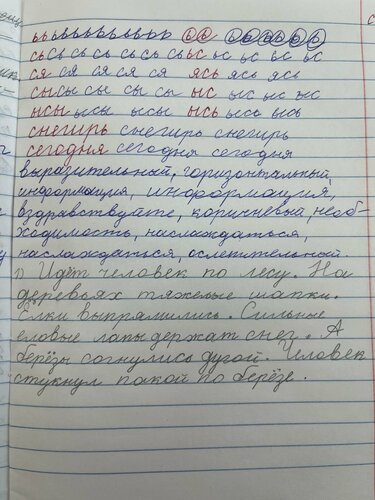 ььььььььььььь сь сь
сь сь сь сь сь сь сь ьс ьс ьс ьс ьс
ся ся ся ся ся ясь ясь ясь
сы сы сы сы сы ыс ыс ыс ыс
нсы ысы ысы нсь ысь ысь
снегирь снегирь снегирь
сегодня сегодня сегодня
выразительный, горизонтальный,
информация, информация,
вздравствуйте, коричневый, необ-
ходимость, наслаждаться,
наслаждаться, ослепительный.
1) Идёт человек по лесу. На
деревьях тяжелые шапки.
Ёлки выпрямились. Сильные
еловые лапы держат снег. А
берёзы согнулись дугой. Человек
стукнул палкой по берёзе.